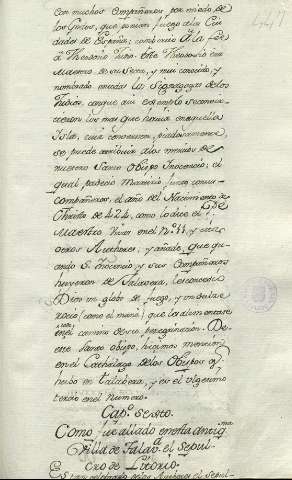 con muchos Compañeros por miedo de
los Godos, que ponian fuego a las Ciu
dades de España; combirtio a la Fee
a Theodoro Judio. Este Theodoro era
Maestro de su Secta, y mui conocido, y
nombrado en todas las Sigagogas de los
Judios, con que a su exemplo se convir
tieron los mas que havia en aquella
Isla, cuia conversion, piadosamente
se puede atribuir a los meritos de
nuestro Santo Obispo Inocencio; el
qual padecio Martirio junto con sus
compañeros, el año del Nacimiento de
Christo de 424, como lo dice el P.e
Maestro en el n.º 11, y otros
otros Authores; y añade, que qu
ando S. Inocencio y sus Compañeros
huieron de Talavera, les aparecio
Dios un globo de fuego, y un
rocio (como el maná) que los alimentase
en el camino de su peregrinacion. De
este Santo obispo, hicimos mencion
en el Cathalago de los Obispos q.e
huvo en Talavera, y es el vigesimo
tercio en el numero.
Cap.º sexto.
Como fue allado en esta antig.ma
Villa de Talav.a el sepul-
cro de Litorio.
Es tan celebrado de los Authores el sepul-